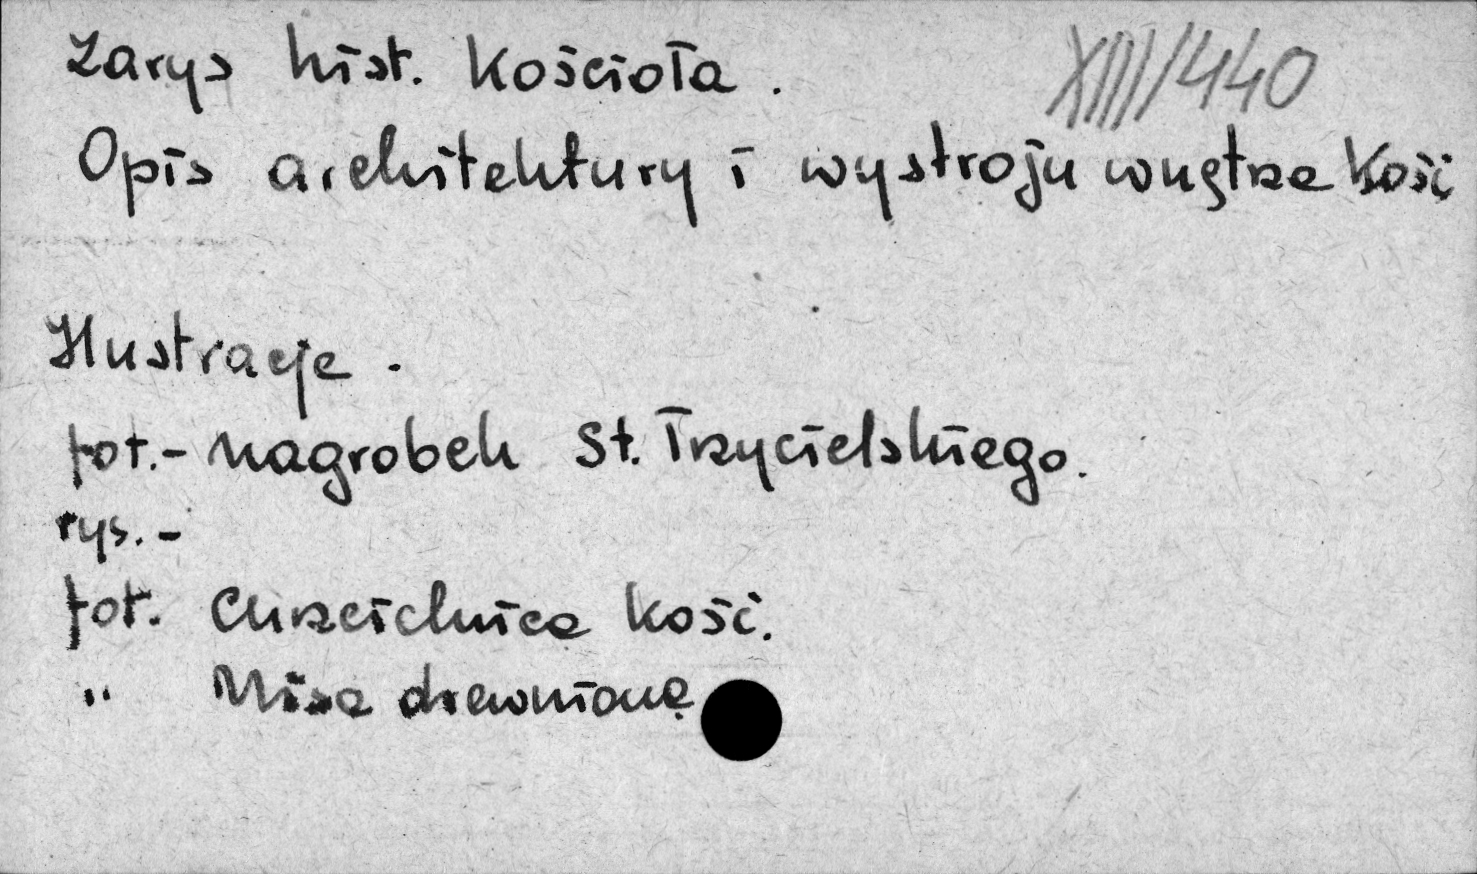 Zarys hist. Kościoła. XIII/440
Opis architektury i wystroju wnętrza Kość
Ilustracje.
fot.- nagrobek St. Trzycielskiego.
rys.-
fot. Chrzcielnica kość.
" Misa drewniana